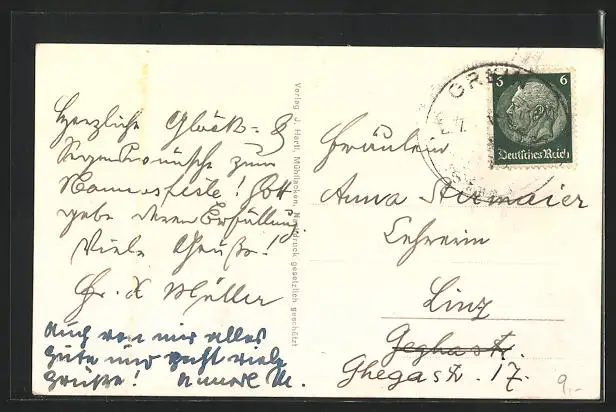 Herzliche Glück- &
Segenswünsche zum
Namensfeste! Gott
gebe deren Erfüllung.
Viele Grüße!
Gr. X Müller
Auch von mir alles
Gute und recht viele
Grüße!
Verlag J. Hartl, Mühllacken. Nachdruck gesetzlich geschützt
GREIN
6 6
Deutsches Reich
Fräulein
Anna Stermaier
Lehrerin
Linz
Ghegastr. 17.
9.-